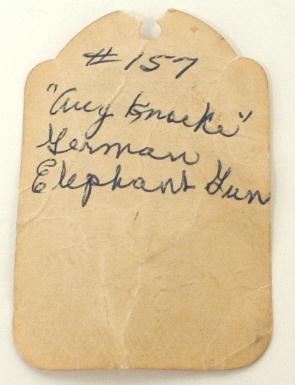 #157
"Aug Knocke"
German
Elephant Gun